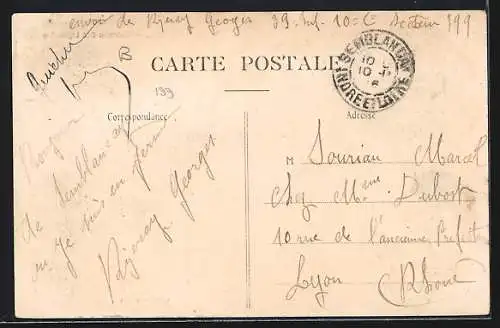 envoi de Rijeray Georges 39 Inf. 10e Cie Secteur 199
B
CARTE POSTALE
SEMBLANÇAY
10
10
INDRE ET LOIRE
199
Correspondance
Adresse
Bonjour
de Semblançay
ou je suis en
Rijeray Georges
M Sourian Marcel
Chez Mme Dubost
10 rue de l'ancienne Préfecture
Lyon Rhône